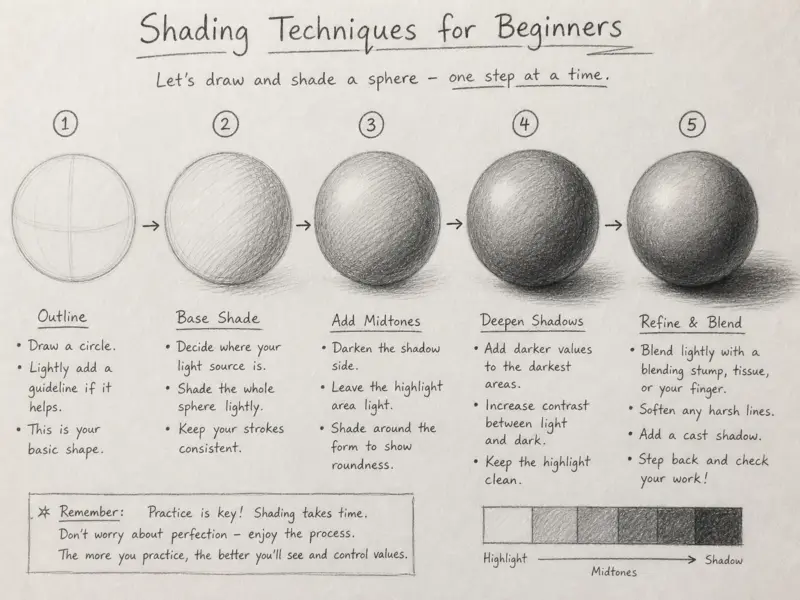 Shading Techniques for Beginners
Let's draw and shade a sphere – one step at a time.
1
2
3
4
5
Outline
• Draw a circle.
• Lightly add a
guideline if it
helps.
• This is your
basic shape.
Base Shade
• Decide where your
light source is.
• Shade the whole
sphere lightly.
• Keep your strokes
consistent.
Add Midtones
• Darken the shadow
side.
• Leave the highlight
area light.
• Shade around the
form to show
roundness.
Deepen Shadows
• Add darker values
to the darkest
areas.
• Increase contrast
between light
and dark.
• Keep the highlight
clean.
Refine & Blend
• Blend lightly with a
blending stump, tissue,
or your finger.
• Soften any harsh lines.
• Add a cast shadow.
• Step back and check
your work!
Remember: Practice is key! Shading takes time.
Don't worry about perfection – enjoy the process.
The more you practice, the better you'll see and control values.
Highlight
Midtones
Shadow